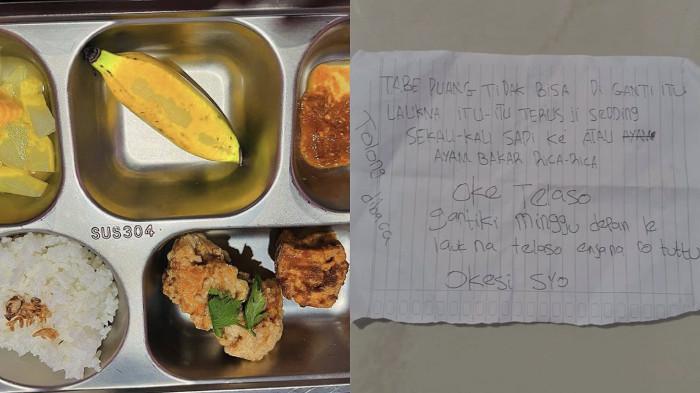 SUS304
TABE PUANG TIDAK BISA DI GANTI ITU
LAUKNA ITU-ITU TERUS JI SEDDING
SEKALI-KALI SAPI KE ATAU AYAM
AYAM BAKAR RICA-RICA
Oke TeLaso
gantiki minggu depan le
lauk na telaso enjana co tuttu
Okesi SYO
Tolong dibaca